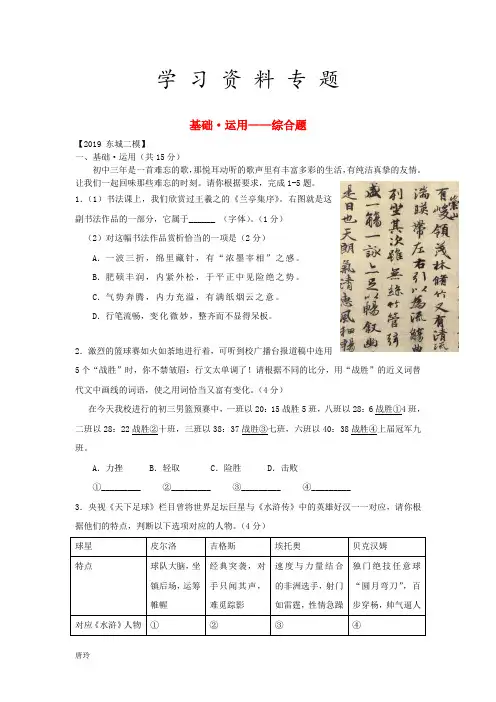 学 习 资 料 专 题
基础·运用——综合题
【2019 东城二模】
一、基础·运用（共15分）
初中三年是一首难忘的歌，那悦耳动听的歌声里有丰富多彩的生活，有纯洁真挚的友情。
让我们一起回味那些难忘的时刻。请你根据要求，完成1-5题。
1．（1）书法课上，我们欣赏过王羲之的《兰亭集序》。右图就是这
副书法作品的一部分，它属于______ （字体）。（1分）
（2）对这幅书法作品赏析恰当的一项是（2分）
A．一波三折，绵里藏针，有“浓墨宰相”之感。
B．肥硕丰润，内紧外松，于平正中见险绝之势。
C．气势奔腾，内力充溢，有满纸烟云之意。
D．行笔流畅，变化微妙，整齐而不显得呆板。
有崇山
有峻領茂林脩竹又有清流激
湍暎帶左右引以為流觴曲水
列坐其次雖無絲竹管弦之
盛一觴一詠亦足以暢叙幽情
是日也天朗氣清惠風和暢
2．激烈的篮球赛如火如荼地进行着，可听到校广播台报道稿中连用
5个“战胜”时，你不禁皱眉：行文太单调了！请根据不同的比分，用“战胜”的近义词替
代文中画线的词语，使之用词恰当又富有变化。（4分）
在今天我校进行的初三男篮预赛中，一班以20：15战胜5班，八班以28：6战胜①4班，
二班以28：22战胜②十班，三班以38：37战胜③七班，六班以40：38战胜④上届冠军九
班。
A．力挫 B．轻取 C．险胜 D．击败
①_________ ②_________ ③_________ ④_________
3．央视《天下足球》栏目曾将世界足坛巨星与《水浒传》中的英雄好汉一一对应，请你根
据他们的特点，判断以下选项对应的人物。（4分）
球星 皮尔洛 吉格斯 埃托奥 贝克汉姆
特点 球队大脑，坐镇后场，运筹帷幄 经典突袭，对手只闻其声，难觅踪影 速度与力量结合的非洲选手，射门如雷霆，性情急躁 独门绝技任意球“圆月弯刀”，百步穿杨，帅气逼人
对应《水浒》人物 ① ② ③ ④
唐玲